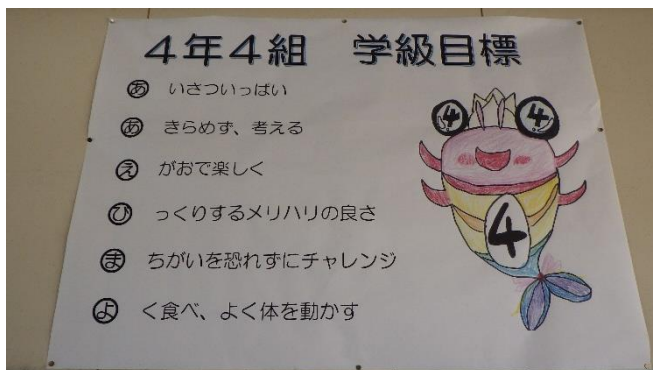 4年4組　学級目標
あ いさついっぱい
あ きらめず、考える
え がおで楽しく
び っくりするメリハリの良さ
ま ちがいを恐れずにチャレンジ
よ く食べ、よく体を動かす
4 4
4